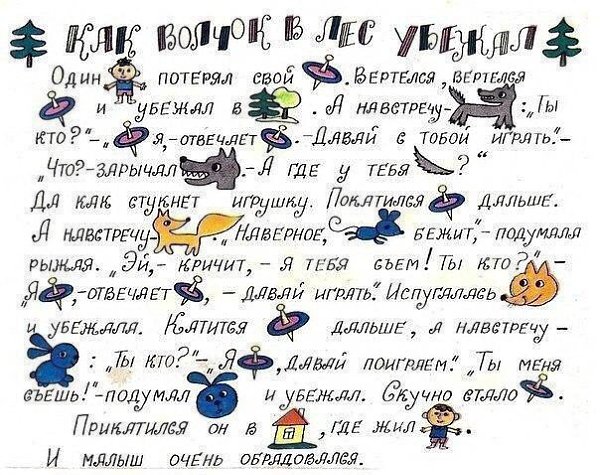 КАК ВОЛЧОК В ЛЕС УБЕЖАЛ
Один потерял свой . Вертелся, вертелся
и убежал в . А навстречу- : „Ты
кто?"-„ я,-отвечает .-Давай с тобой играть."-
„Что?-зарычал .-А где у тебя ?"
Да как стукнет игрушку. Покатился дальше.
А навстречу . „Наверное, бежит",-подумала
рыжая. „Эй,- кричит, - я тебя съем! Ты кто?"-
„Я ,-отвечает , - давай играть." Испугалась
и убежала. Катится дальше, а навстречу -
: „Ты кто?"-„Я , давай поиграем." „Ты меня
съешь!"-подумал и убежал. Скучно стало .
Прикатился он в , где жил .
И малыш очень обрадовался.